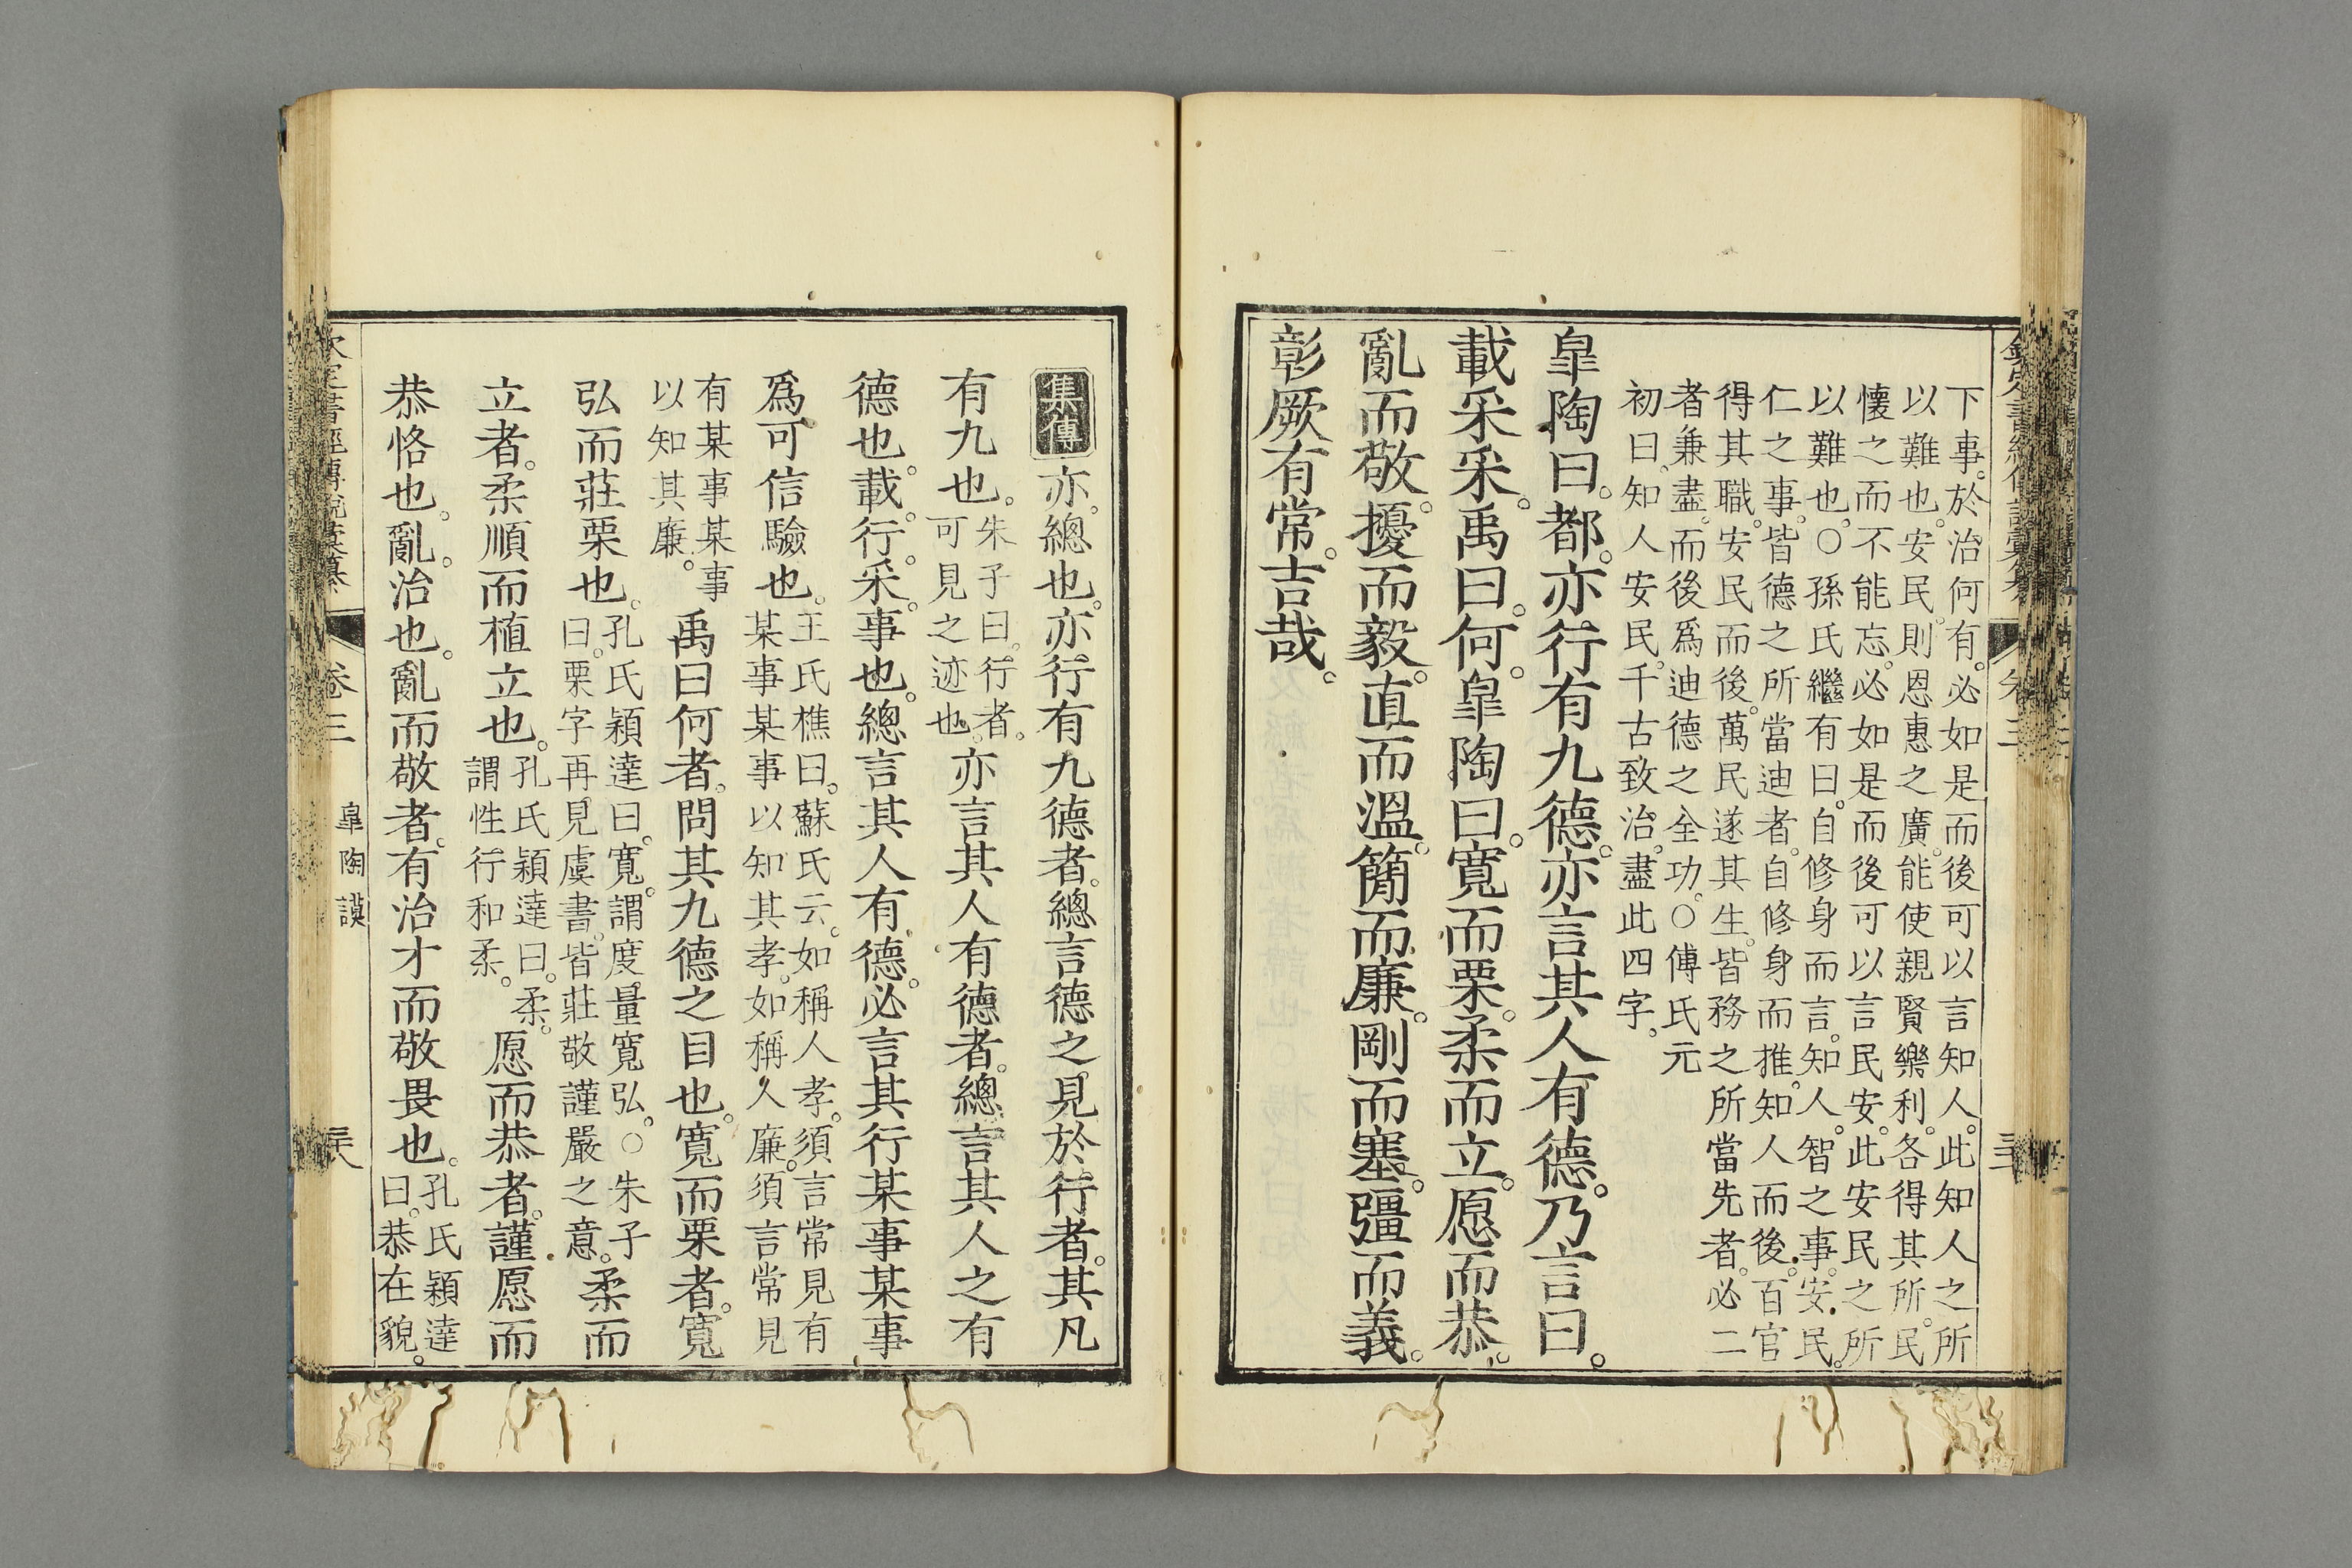 欽定書經傳說彙纂 卷三
下事。於治何有。必如是而後可以言知人。此知人之所
以難也。安民。則恩惠之廣。能使親賢樂利。各得其所。民
懐之而不能忘。必如是而後可以言民安。此安民之所
以難也。○孫氏繼有曰。自修身而言。知人。智之事。安民。
仁之事。皆德之所當迪者。自修身而推。知人而後。百官
得其職。安民而後。萬民遂其生。皆務之所當先者。必二
者兼盡。而後爲迪德之全功。○傅氏元
初曰。知人安民。千古致治。盡此四字。
皐陶曰。都。亦行有九德。亦言其人有德。乃言曰。
載采采。禹曰。何。皐陶曰。寬而栗。柔而立。愿而恭。
亂而敬。擾而毅。直而溫。簡而廉。剛而塞。彊而義。
彰厥有常。吉哉。
集傳 亦。總也。亦行有九德者。總言德之見於行者。其凡
有九也。
朱子曰。行者。
可見之迹也。
亦言其人有德者。總言其人之有
德也。載。行。采。事也。總言其人有德。必言其行某事某事
爲可信驗也。
王氏樵曰。蘇氏云。如稱人孝。須言常見有
某事某事以知其孝。如稱人廉。須言常見
有某事某事
以知其廉。
禹曰何者。問其九德之目也。寬而栗者。寬
弘而莊栗也。
孔氏穎達曰。寬。謂度量寬弘。○朱子
曰。栗字再見虞書。皆莊敬謹嚴之意。
柔而
立者。柔順而植立也。
孔氏穎達曰。柔。
謂性行和柔。
愿而恭者。謹愿而
恭恪也。亂。治也。亂而敬者。有治才而敬畏也。
孔氏穎達
曰。恭在貌。
欽定書經傳說彙纂 卷三 皐陶謨 三六